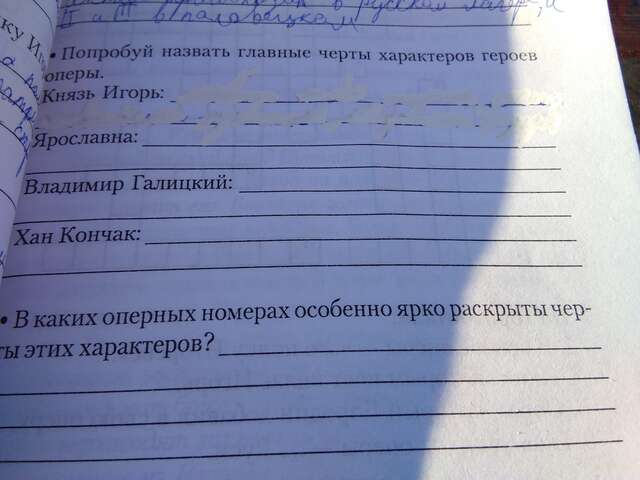 русском лагере, и
II и III в половецком
• Попробуй назвать главные черты характеров героев
оперы.
Князь Игорь:
Ярославна:
Владимир Галицкий:
Хан Кончак:
• В каких оперных номерах особенно ярко раскрыты чер-
ты этих характеров?